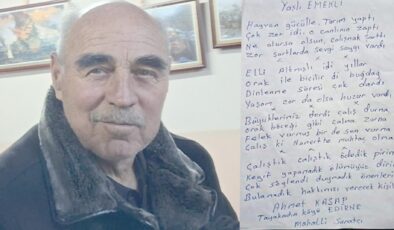 YAŞLI EMEKLİ
Hayvan gücülle, Tarım yaptı,
Çok zor idi, o canlına zaptı
Ne olursa olsun, çalışmak şarttı
Zor şartlarda sevgi saygı vardı
Elli Altmışlı idi yıllar
Orak ile biçilir di buğdaylar
Dinlenme süresi çok dardı
Yaşam zor da olsa huzur vardı,
Büyüklerimiz derdi çalış durma,
Orak böceği gibi çalma zurna
Felek vurmuş bir de sen vurma
Çalış ki Namerte muhtaç olma
Çalıştık çalıştık ödedik pirim
Keyif yapamadık ölümüğüz diri
Çok söylendi duymadık önerileri
Bulamadık hakkımızı verecek kişi
Ahmet KASAP
Tayakadın köyü EDİRNE
Mahalli Sanatçı